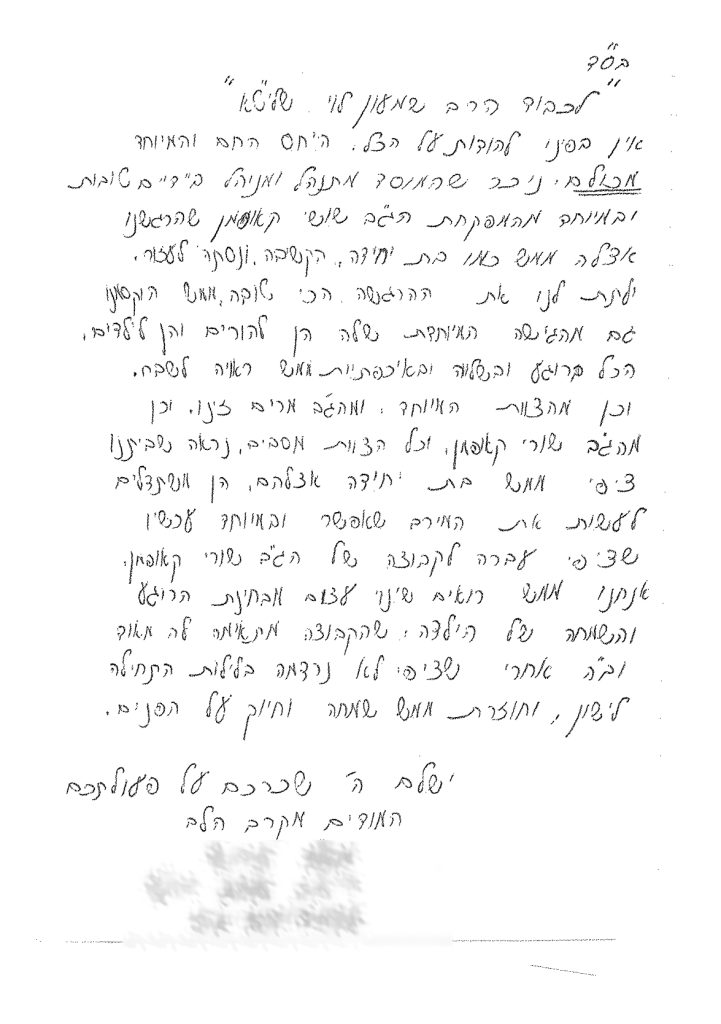 בס"ד
לכבוד הרב שמעון לוי שליט"א
אין בפינו להודות על הכל. היחס החם והמיוחד
מכולם. ניכר שהמוסד מתנהל ומנוהל בידיים טובות
ובמיוחד מהמפקחת הגב' שושי קאופמן שהרגשנו
אצלה ממש כמו בת יחידה, הקשיבה, ונסתה לעזור.
ולתת לנו את ההרגשה הכי טובה, ממש הוקסמנו
גם מהגישה המיוחדת שלה הן להורים והן לילדים.
הכל ברוגע ובשלווה ובאיכפתיות ממש ראויה לשבח.
וכן מהצוות המיוחד, ומהגב' מרים זינו, וכן
מהגב' שורי קאופמן, וכל הצוות מסביב, נראה שביתנו
ציפי ממש בת יחידה אצלהם, הן משתדלים
לעשות את המירב שאפשר ובמיוחד עכשיו
שציפי עברה לקבוצה של הגב' שורי קאופמן.
אנחנו ממש רואים שינוי עצום מבחינת הרוגע
והשמחה של הילדה, שהקבוצה מתאימה לה מאוד
וב"ה אחרי שציפי לא נרדמה בלילות התחילה
לישון, וחוזרת ממש שמחה וחיוך על הפנים.
ישלם ה' שכרכם על פעולתכם
המודים מקרב הלב